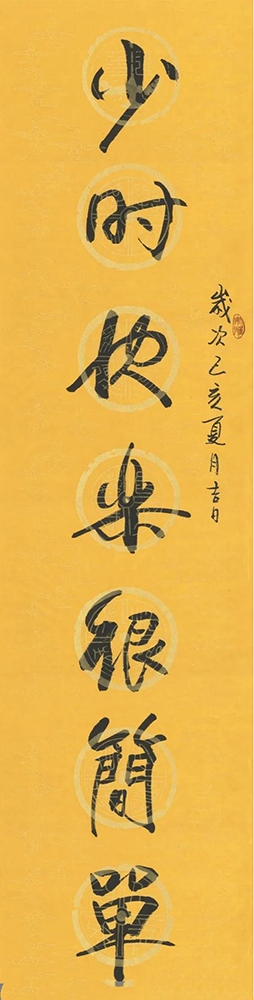 歲次己亥夏月吉日
少时快樂很簡單